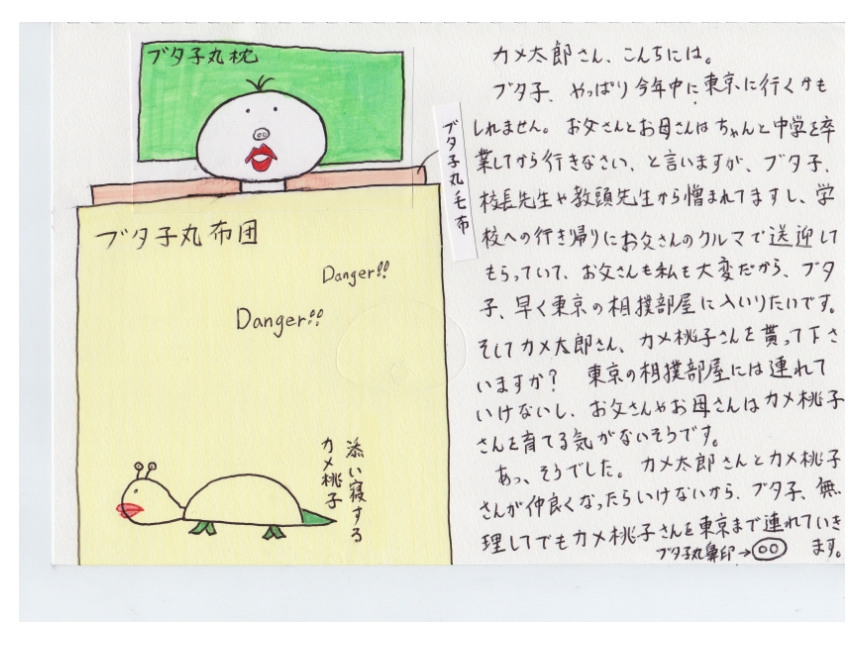 ブタ子丸枕
ブタ子丸毛布
ブタ子丸布団
Danger!!
Danger!!
添い寝する
カメ桃子
カメ太郎さん、こんちには。
ブタ子、やっぱり今年中に東京に行くかも
しれません。お父さんとお母さんはちゃんと中学を卒
業してから行きなさい、と言いますが、ブタ子、
校長先生や教頭先生から憎まれてますし、学
校への行き帰りにお父さんのクルマで送迎して
もらっていて、お父さんも私も大変だから、ブタ
子、早く東京の相撲部屋に入いりたいです。
そしてカメ太郎さん、カメ桃子さんを貰って下さ
いますか? 東京の相撲部屋には連れて
いけないし、お父さんやお母さんはカメ桃子
さんを育てる気がないそうです。
あっ、そうでした。カメ太郎さんとカメ桃子
さんが仲良くなったらいけないから、ブタ子、無
理してでもカメ桃子さんを東京まで連れていき
ます。
ブタ子丸鼻印→